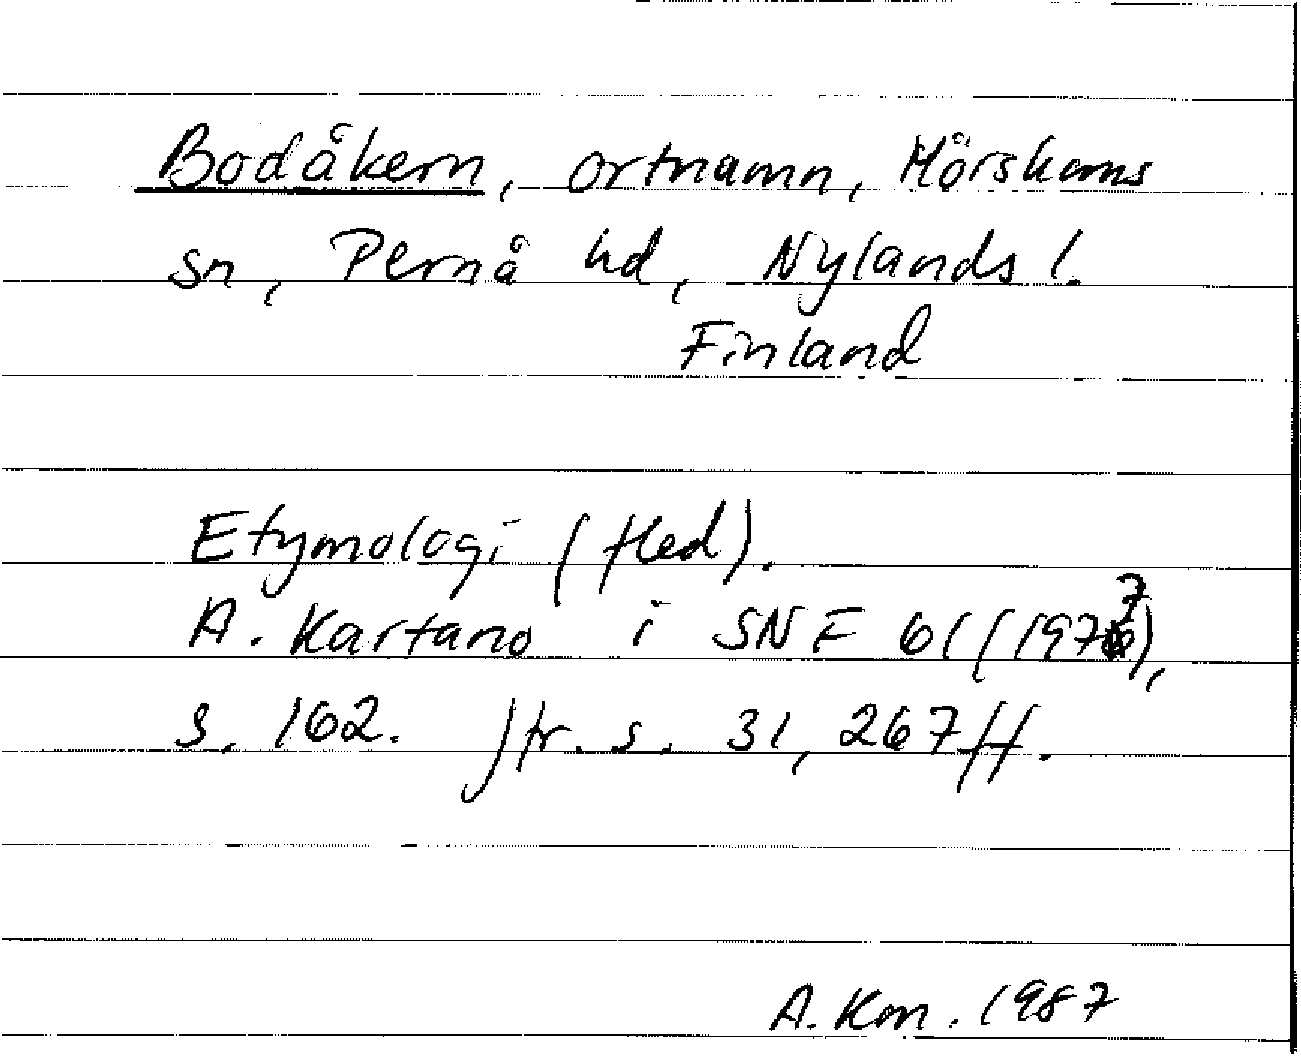 Bodåkern, ortnamn, Mörskoms
sn, Pernå hd, Nylands l.
Finland
Etymologi (fled).
A. Kartano i SNF 61 (1977),
s. 162. Jfr. s. 31, 267 ff.
A. Kon. 1987